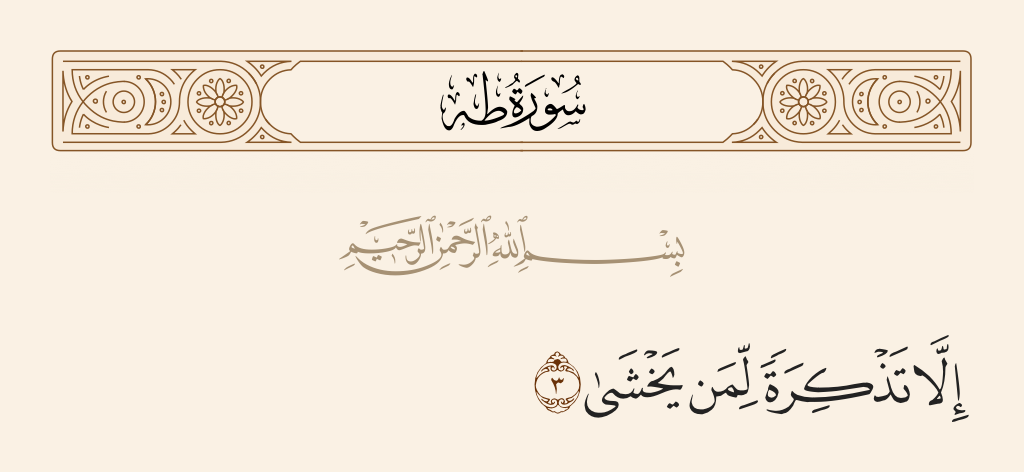 سُورَةُ طه
بِسْمِ ٱللَّهِ ٱلرَّحْمَٰنِ ٱلرَّحِيمِ
إِلَّا تَذْكِرَةً لِّمَن يَخْشَىٰ ٣